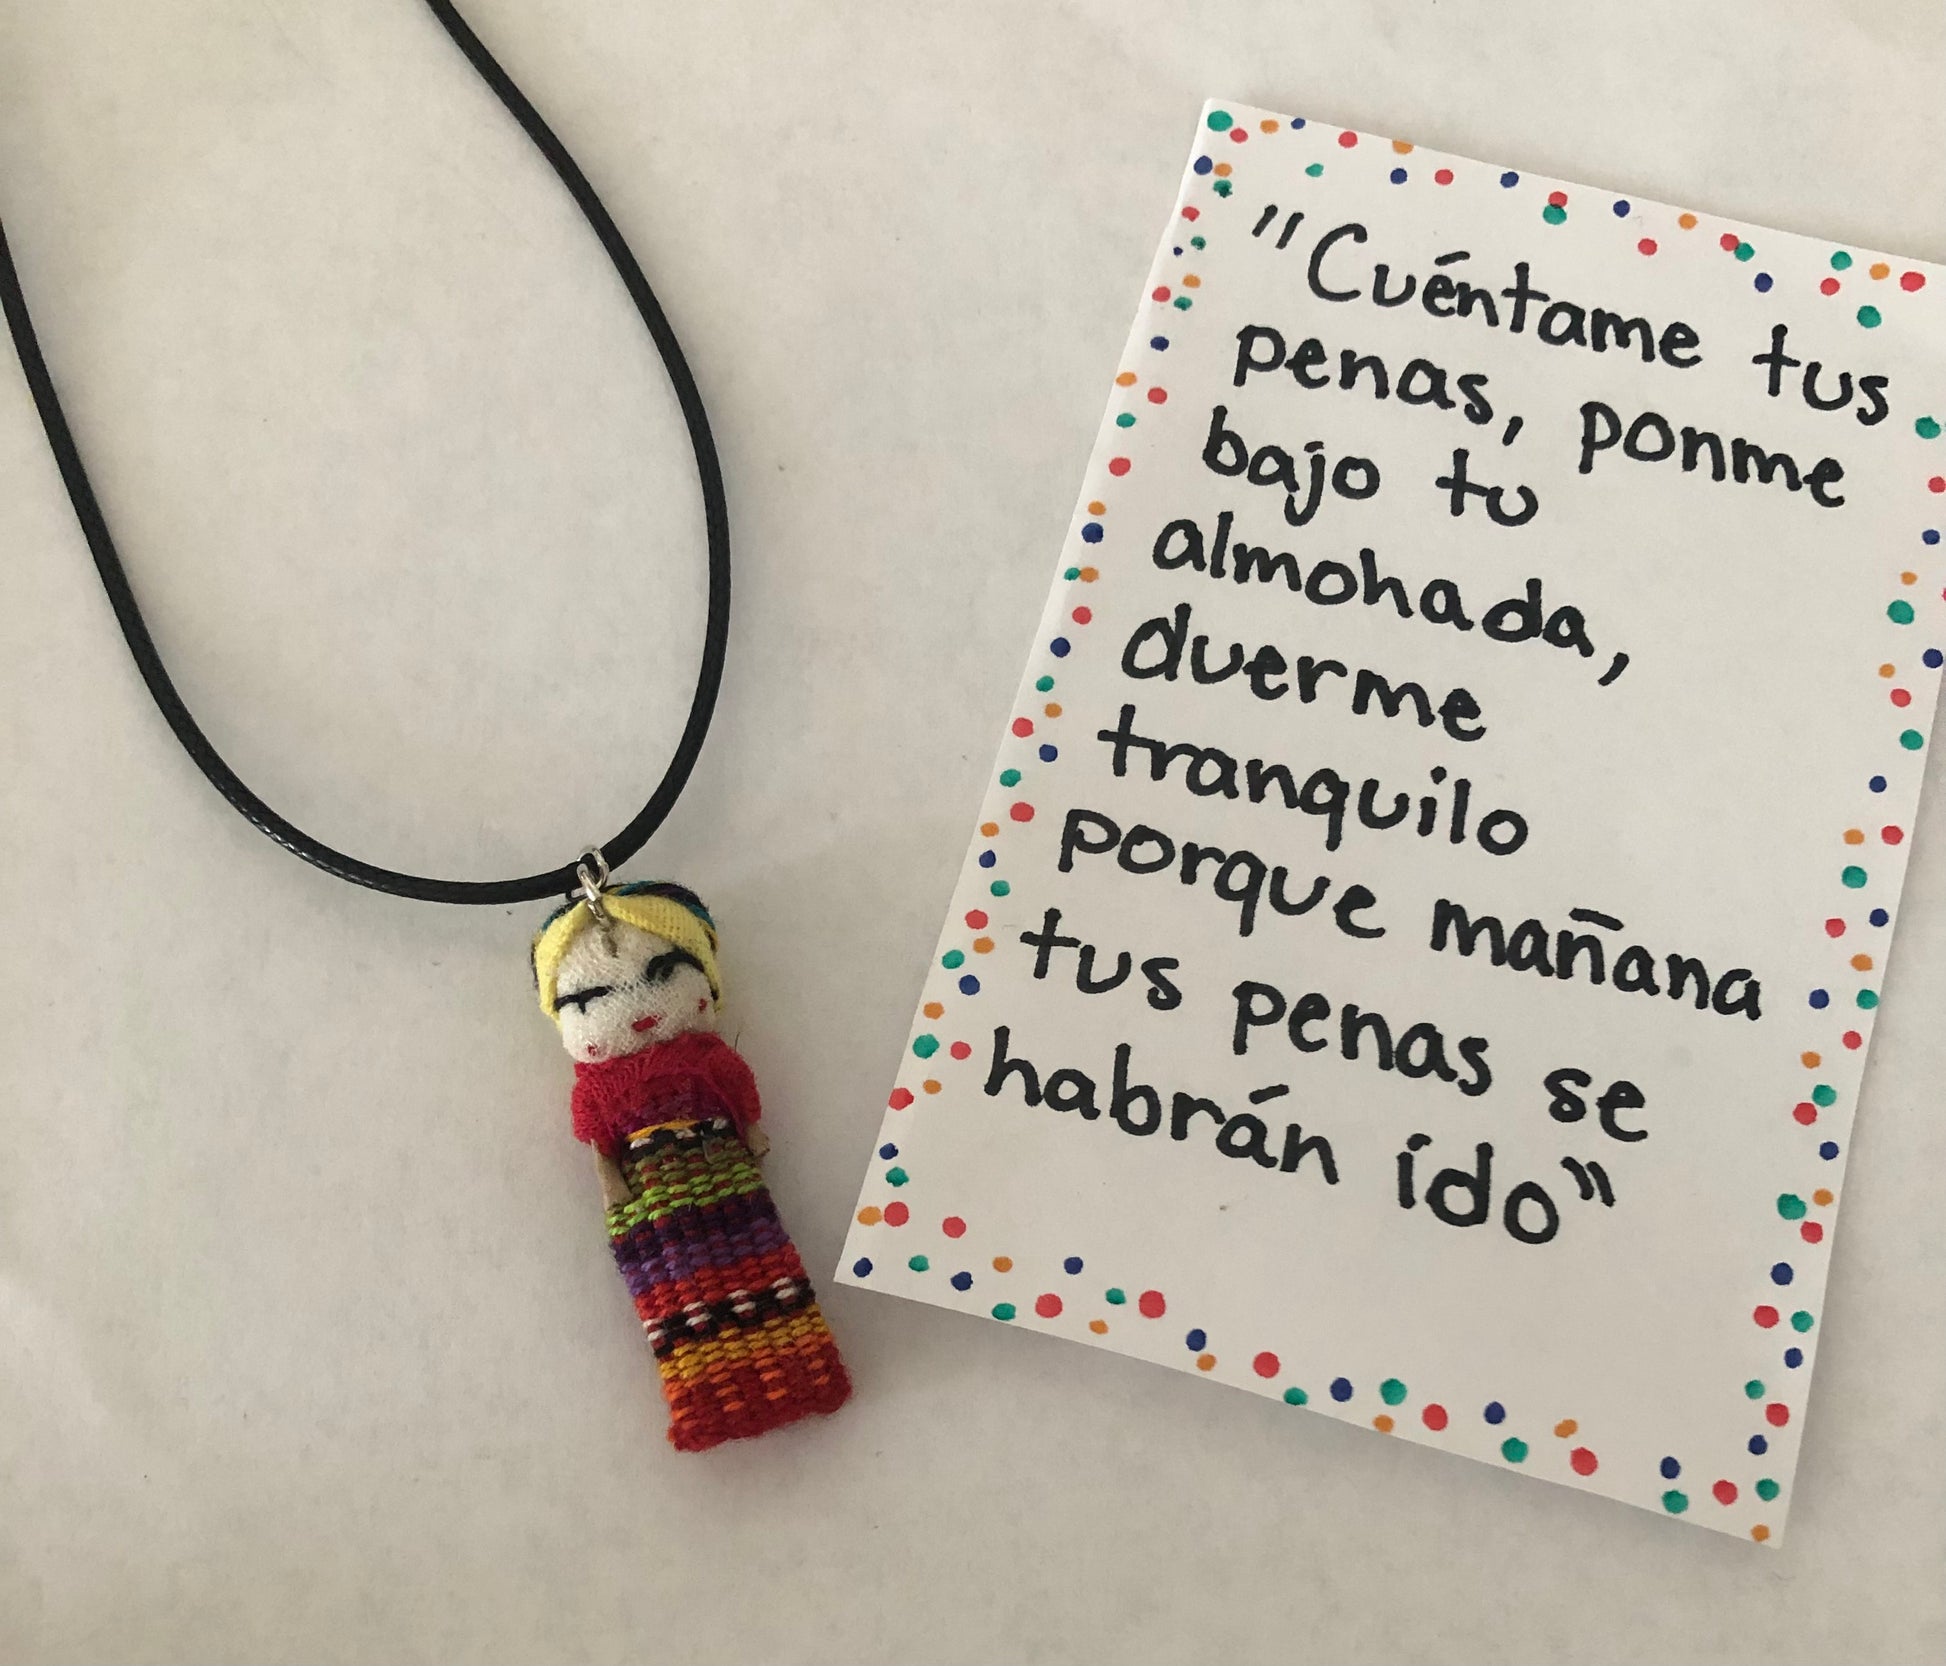 "Cuéntame tus
penas, ponme
bajo tu
almohada,
duerme
tranquilo
porque mañana
tus penas se
habrán ido"